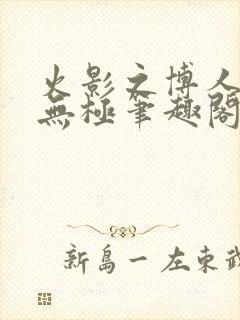 火影之博人
無極筆趣閣
新島一左東武